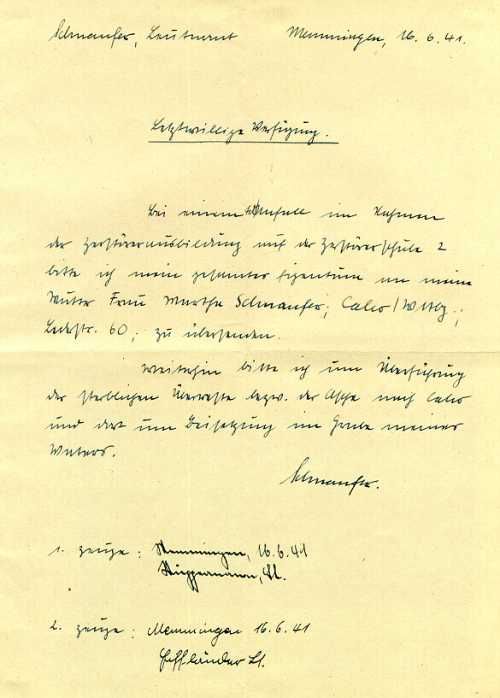 Schnaufer, Leutnant Memmingen, 16.6.41.
Letztwillige Verfügung.
Bei einem Unfall im Rahmen
der Zerstörerausbildung auf der Zerstörerschule 2
bitte ich mein gesamtes Eigentum an meine
Mutter Frau Martha Schnaufer, Calw/Wttbg.;
Lederstr. 60; zu übersenden.
Weiterhin bitte ich um Überführung
der sterblichen Überreste bezw. der Asche nach Calw
und dort um Beisetzung im Grabe meines
Vaters.
Schnaufer.
1. Zeuge: Memmingen, 16.6.41
Lt.
2. Zeuge: Memmingen 16.6.41
Lt.